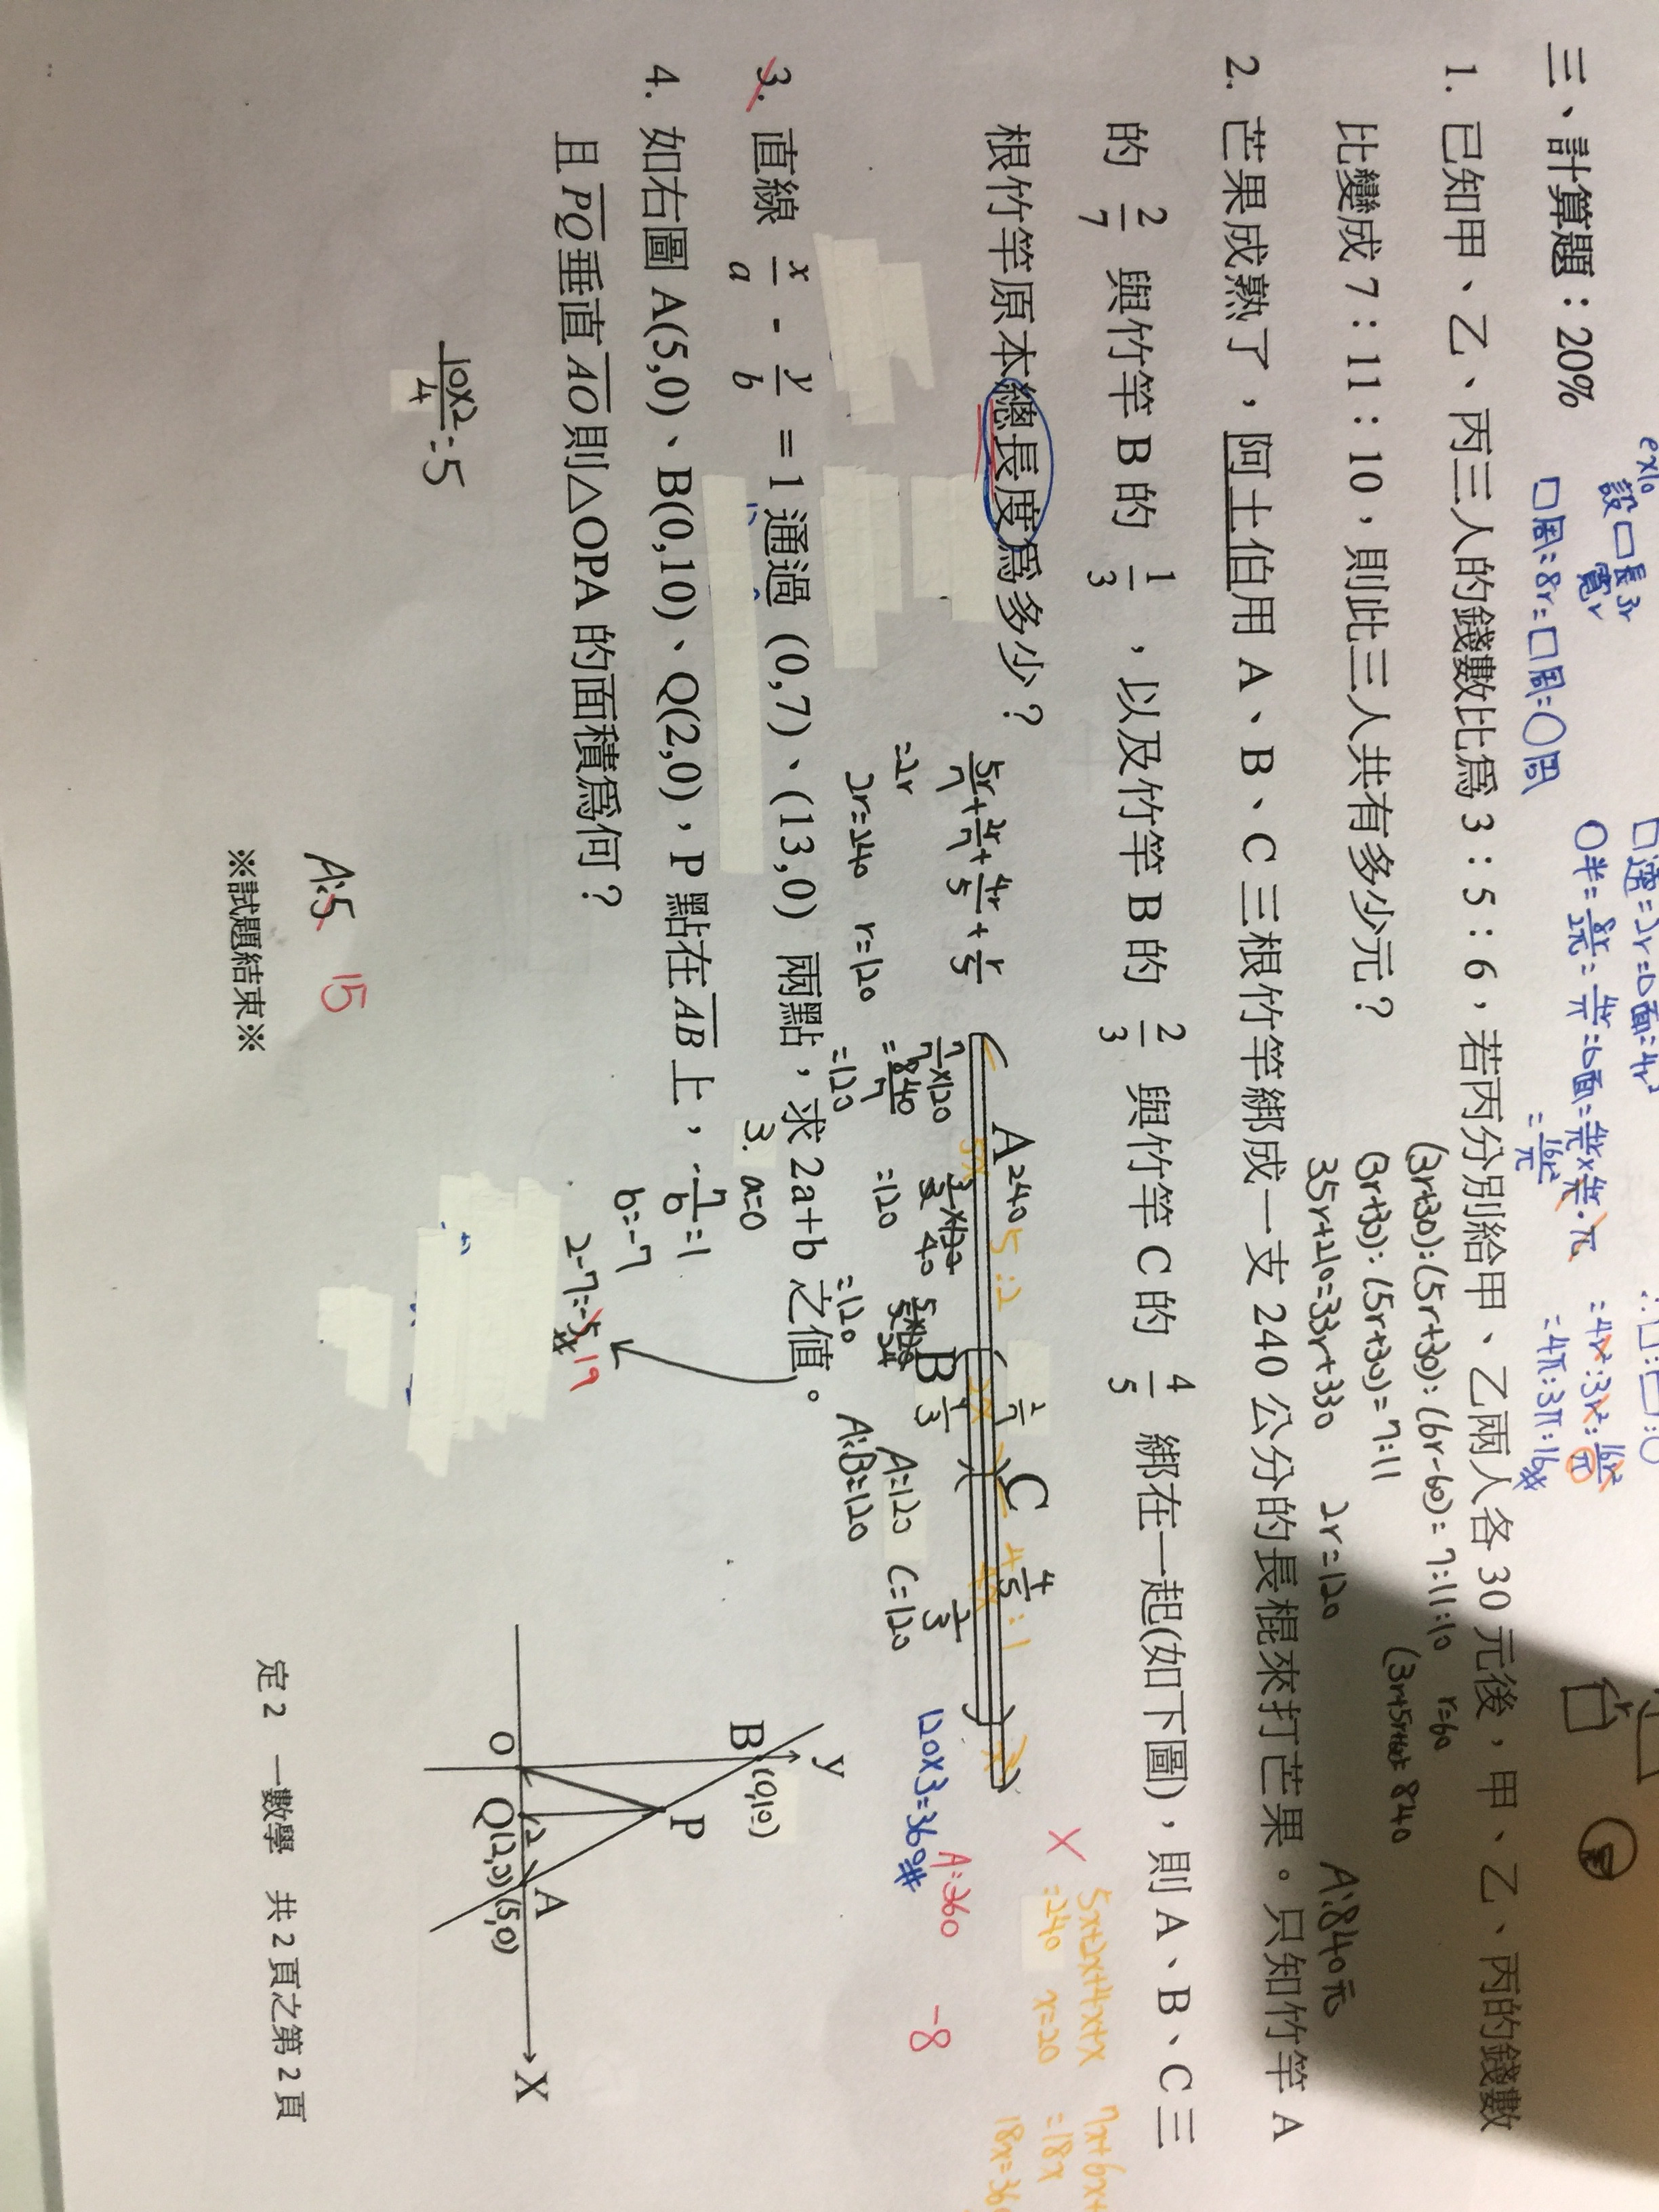 ex10
設□長3r
寬r
□周:8r=□周=○周
□邊=2r=□面=4r²
○半=8r/2π=4r/π=○面=4r/π×4r/π·π
=16r²/π
=4r²:3r²:16r²/π
=4π:3π:16
三、計算題:20%
1. 已知甲、乙、丙三人的錢數比為 3:5:6,若丙分別給甲、乙兩人各 30 元後,甲、乙、丙的錢數
比變成 7:11:10,則此三人共有多少元?
(3r+30):(5r+30):(6r-60)=7:11:10
(3r+30):(5r+30)=7:11
35r+210=33r+330
2r=120
r=60
840
A:840元
2. 芒果成熟了,阿土伯用 A、B、C 三根竹竿綁成一支 240 公分的長棍來打芒果。只知竹竿 A
的 2/7 與竹竿 B 的 1/3 ,以及竹竿 B 的 2/3 與竹竿 C 的 4/5 綁在一起(如下圖),則 A、B、C 三
根竹竿原本總長度為多少?
5r/7+2r/7+4r/5+r/5
=2r
2r=240 r=120
A 240 5:2 2/7 C 4/5 :1
B 1/3 2/3
7/7×120
=840/7
=120
=120
=120
A=120 C=120
A:B=120
120×3=360#
A:360
-8
5x+2x+4x+x
=240 x=20
=18x
3. 直線 x/a - y/b = 1 通過 (0,7)、(13,0) 兩點,求 2a+b 之值。
3. a=0
-7/b=1
b=-7
2-7=-5
19
4. 如右圖 A(5,0)、B(0,10)、Q(2,0),P 點在 AB 上,
且 PQ 垂直 AO 則△OPA 的面積為何?
10×2/4=5
A:5 15
y
B (0,10)
P
O Q(2,0) A (5,0) X
2
※試題結束※
定 2 一數學 共 2 頁之第 2 頁